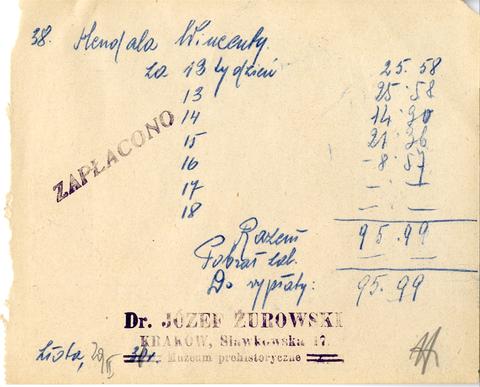 38. Wincenty.
za 12 tydzień 25.58
13 25.58
14 14.90
15 21.36
16 -8.57
17 — —
18 — —
ZAPŁACONO
Razem 95.99
Pobrał zal. — —
Do wypłaty: 95.99
Dr. JÓZEF ŻUROWSKI
KRAKÓW, Sławkowska 17.
Muzeum prehistoryczne
Złota,